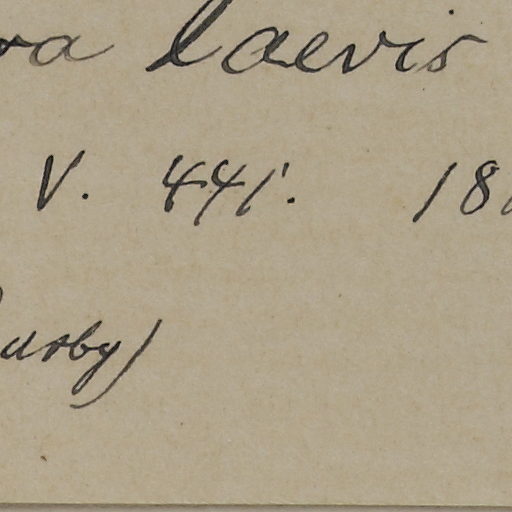 ra laevis
V. 441. 18
usby)